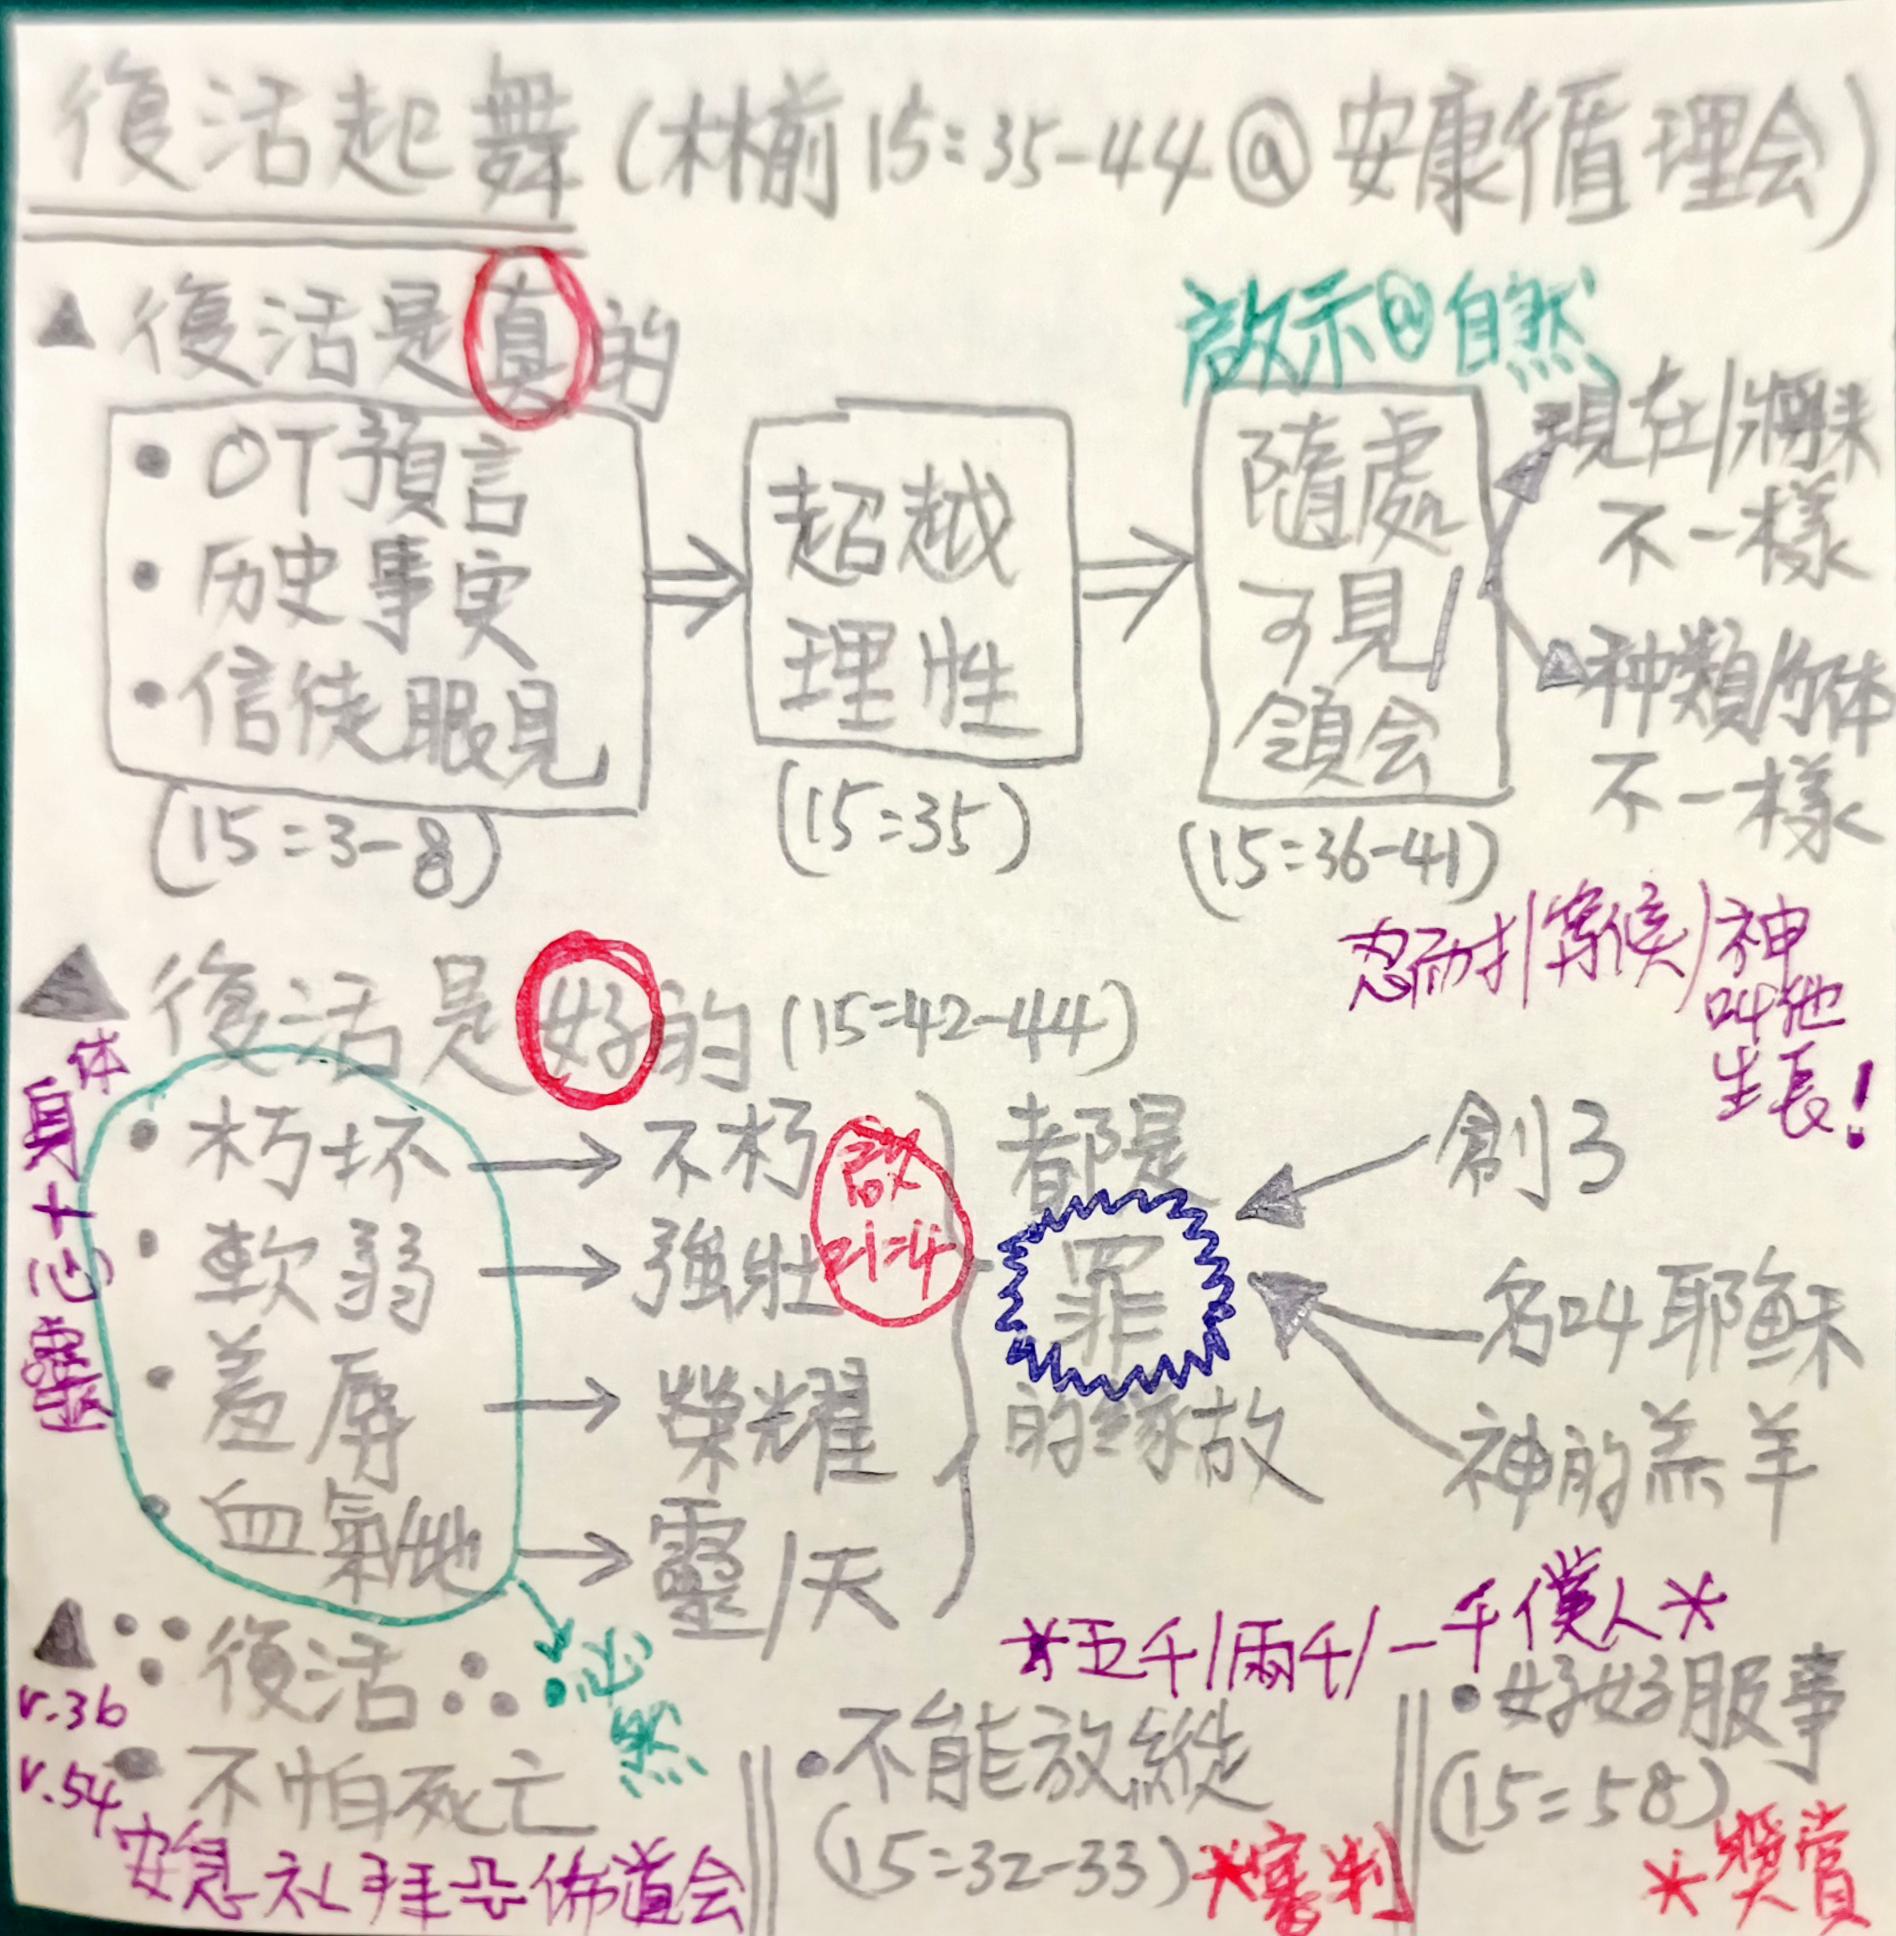 復活起舞(林前15:35-44@安康循理会)
▲復活是真的
啟示@自然
• OT預言
• 历史事実
• 信徒眼見
(15:3-8)
超越
理性
(15:35)
隨處
可見/
領会
(15:36-41)
現在/將來
不一樣
种類/个体
不一樣
忍耐/等候/神
叫他
生長!
▲復活是好的(15:42-44)
身体+心靈
• 朽坏→不朽
• 軟弱→強壯
• 羞辱→榮耀
• 血氣/地→靈/天
啟
21:4
都是
罪
的緣故
創3
名叫耶穌
神的羔羊
▲∵復活∴
必然
v.36
v.54
• 不怕死亡
安息礼拜
佈道会
*五千/兩千/一千僕人*
• 不能放縱
(15:32-33)
*審判
• 好好服事
(15:58)
*獎賞